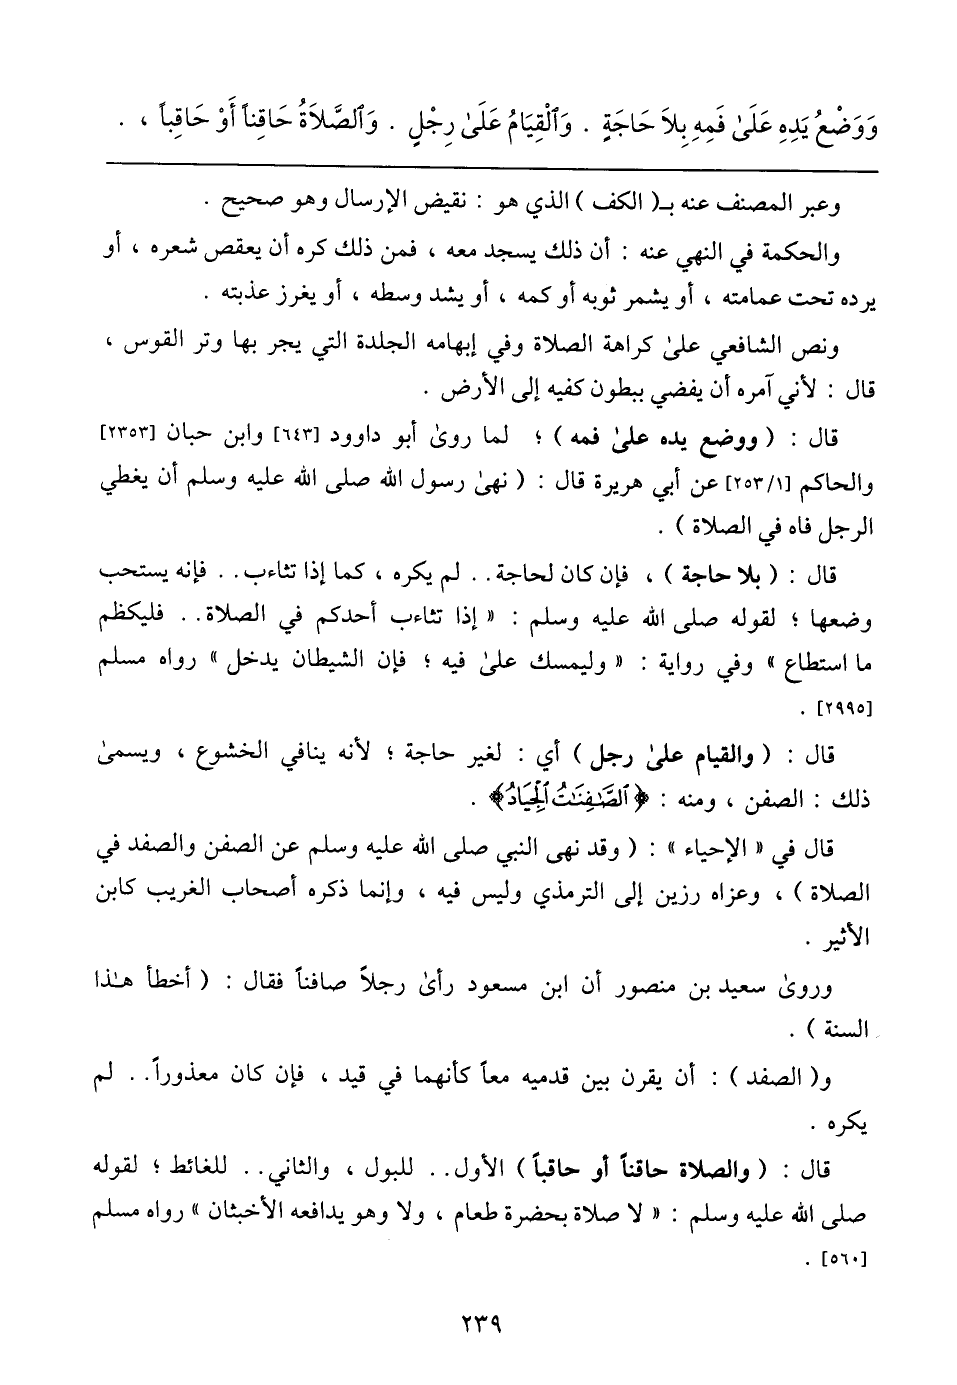 وَوَضْعُ يَدِهِ عَلَىٰ فَمِهِ بِلاَ حَاجَةٍ . وَٱلْقِيَامُ عَلَىٰ رِجْلٍ . وَٱلصَّلاَةُ حَاقِناً أَوْ حَاقِباً ، .
وعبر المصنف عنه بـ( الكف ) الذي هو : نقيض الإرسال وهو صحيح .
والحكمة في النهي عنه : أن ذلك يسجد معه ، فمن ذلك كره أن يعقص شعره ، أو
يرده تحت عمامته ، أو يشمر ثوبه أو كمه ، أو يشد وسطه ، أو يغرز عذبته .
ونص الشافعي علىٰ كراهة الصلاة وفي إبهامه الجلدة التي يجر بها وتر القوس ،
قال : لأني آمره أن يفضي ببطون كفيه إلى الأرض .
قال : ( ووضع يده علىٰ فمه ) ؛ لما روىٰ أبو داوود [٦٤٣] وابن حبان [٢٣٥٣]
والحاكم [٢٥٣/١] عن أبي هريرة قال : ( نهىٰ رسول الله صلى الله عليه وسلم أن يغطي
الرجل فاه في الصلاة ) .
قال : ( بلا حاجة ) ، فإن كان لحاجة.. لم يكره ، كما إذا تثاءب.. فإنه يستحب
وضعها ؛ لقوله صلى الله عليه وسلم : « إذا تثاءب أحدكم في الصلاة.. فليكظم
ما استطاع » وفي رواية : « وليمسك علىٰ فيه ؛ فإن الشيطان يدخل » رواه مسلم
[٢٩٩٥] .
قال : ( والقيام علىٰ رجل ) أي : لغير حاجة ؛ لأنه ينافي الخشوع ، ويسمىٰ
ذلك : الصفن ، ومنه : ﴿ ٱلصَّٰفِنَٰتُ ٱلْجِيَادُ ﴾ .
قال في « الإحياء » : ( وقد نهى النبي صلى الله عليه وسلم عن الصفن والصفد في
الصلاة ) ، وعزاه رزين إلى الترمذي وليس فيه ، وإنما ذكره أصحاب الغريب كابن
الأثير .
وروىٰ سعيد بن منصور أن ابن مسعود رأىٰ رجلاً صافناً فقال : ( أخطأ هـٰذا
السنة ) .
و( الصفد ) : أن يقرن بين قدميه معاً كأنهما في قيد ، فإن كان معذوراً.. لم
يكره .
قال : ( والصلاة حاقناً أو حاقباً ) الأول.. للبول ، والثاني.. للغائط ؛ لقوله
صلى الله عليه وسلم : « لا صلاة بحضرة طعام ، ولا وهو يدافعه الأخبثان » رواه مسلم
[٥٦٠] .
٢٣٩